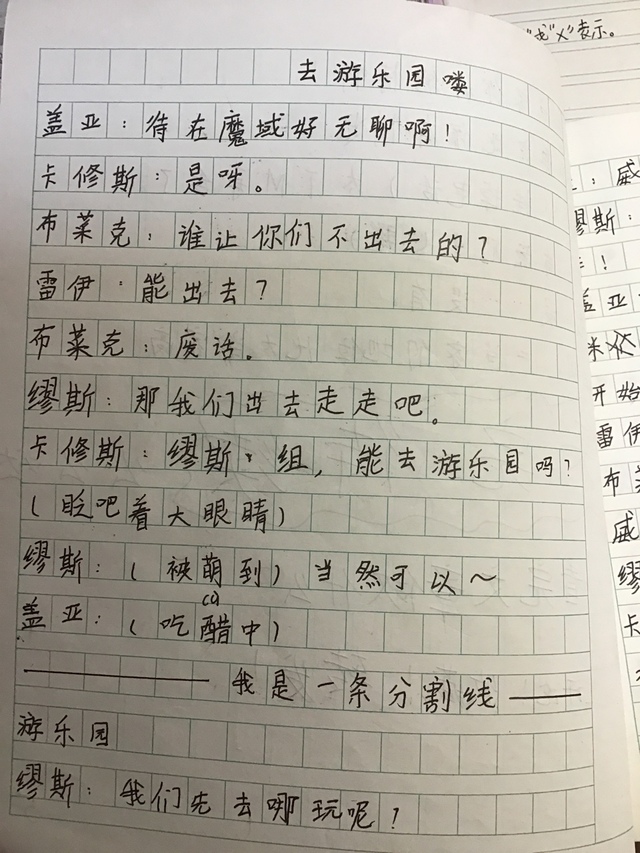 去游乐园喽
盖亚：待在魔域好无聊啊！
卡修斯：是呀。
布莱克：谁让你们不出去的？
雷伊：能出去？
布莱克：废话。
缪斯：那我们出去走走吧。
卡修斯：缪斯·组，能去游乐园吗？
（眨吧着大眼睛）
缪斯：（被萌到）当然可以～
盖亚：（吃醋中）
cù
——我是一条分割线——
游乐园
缪斯：我们先去哪玩呢？
表示。
：威
缪斯：
！
盖亚：
开始
雷伊
布
威
缪
卡